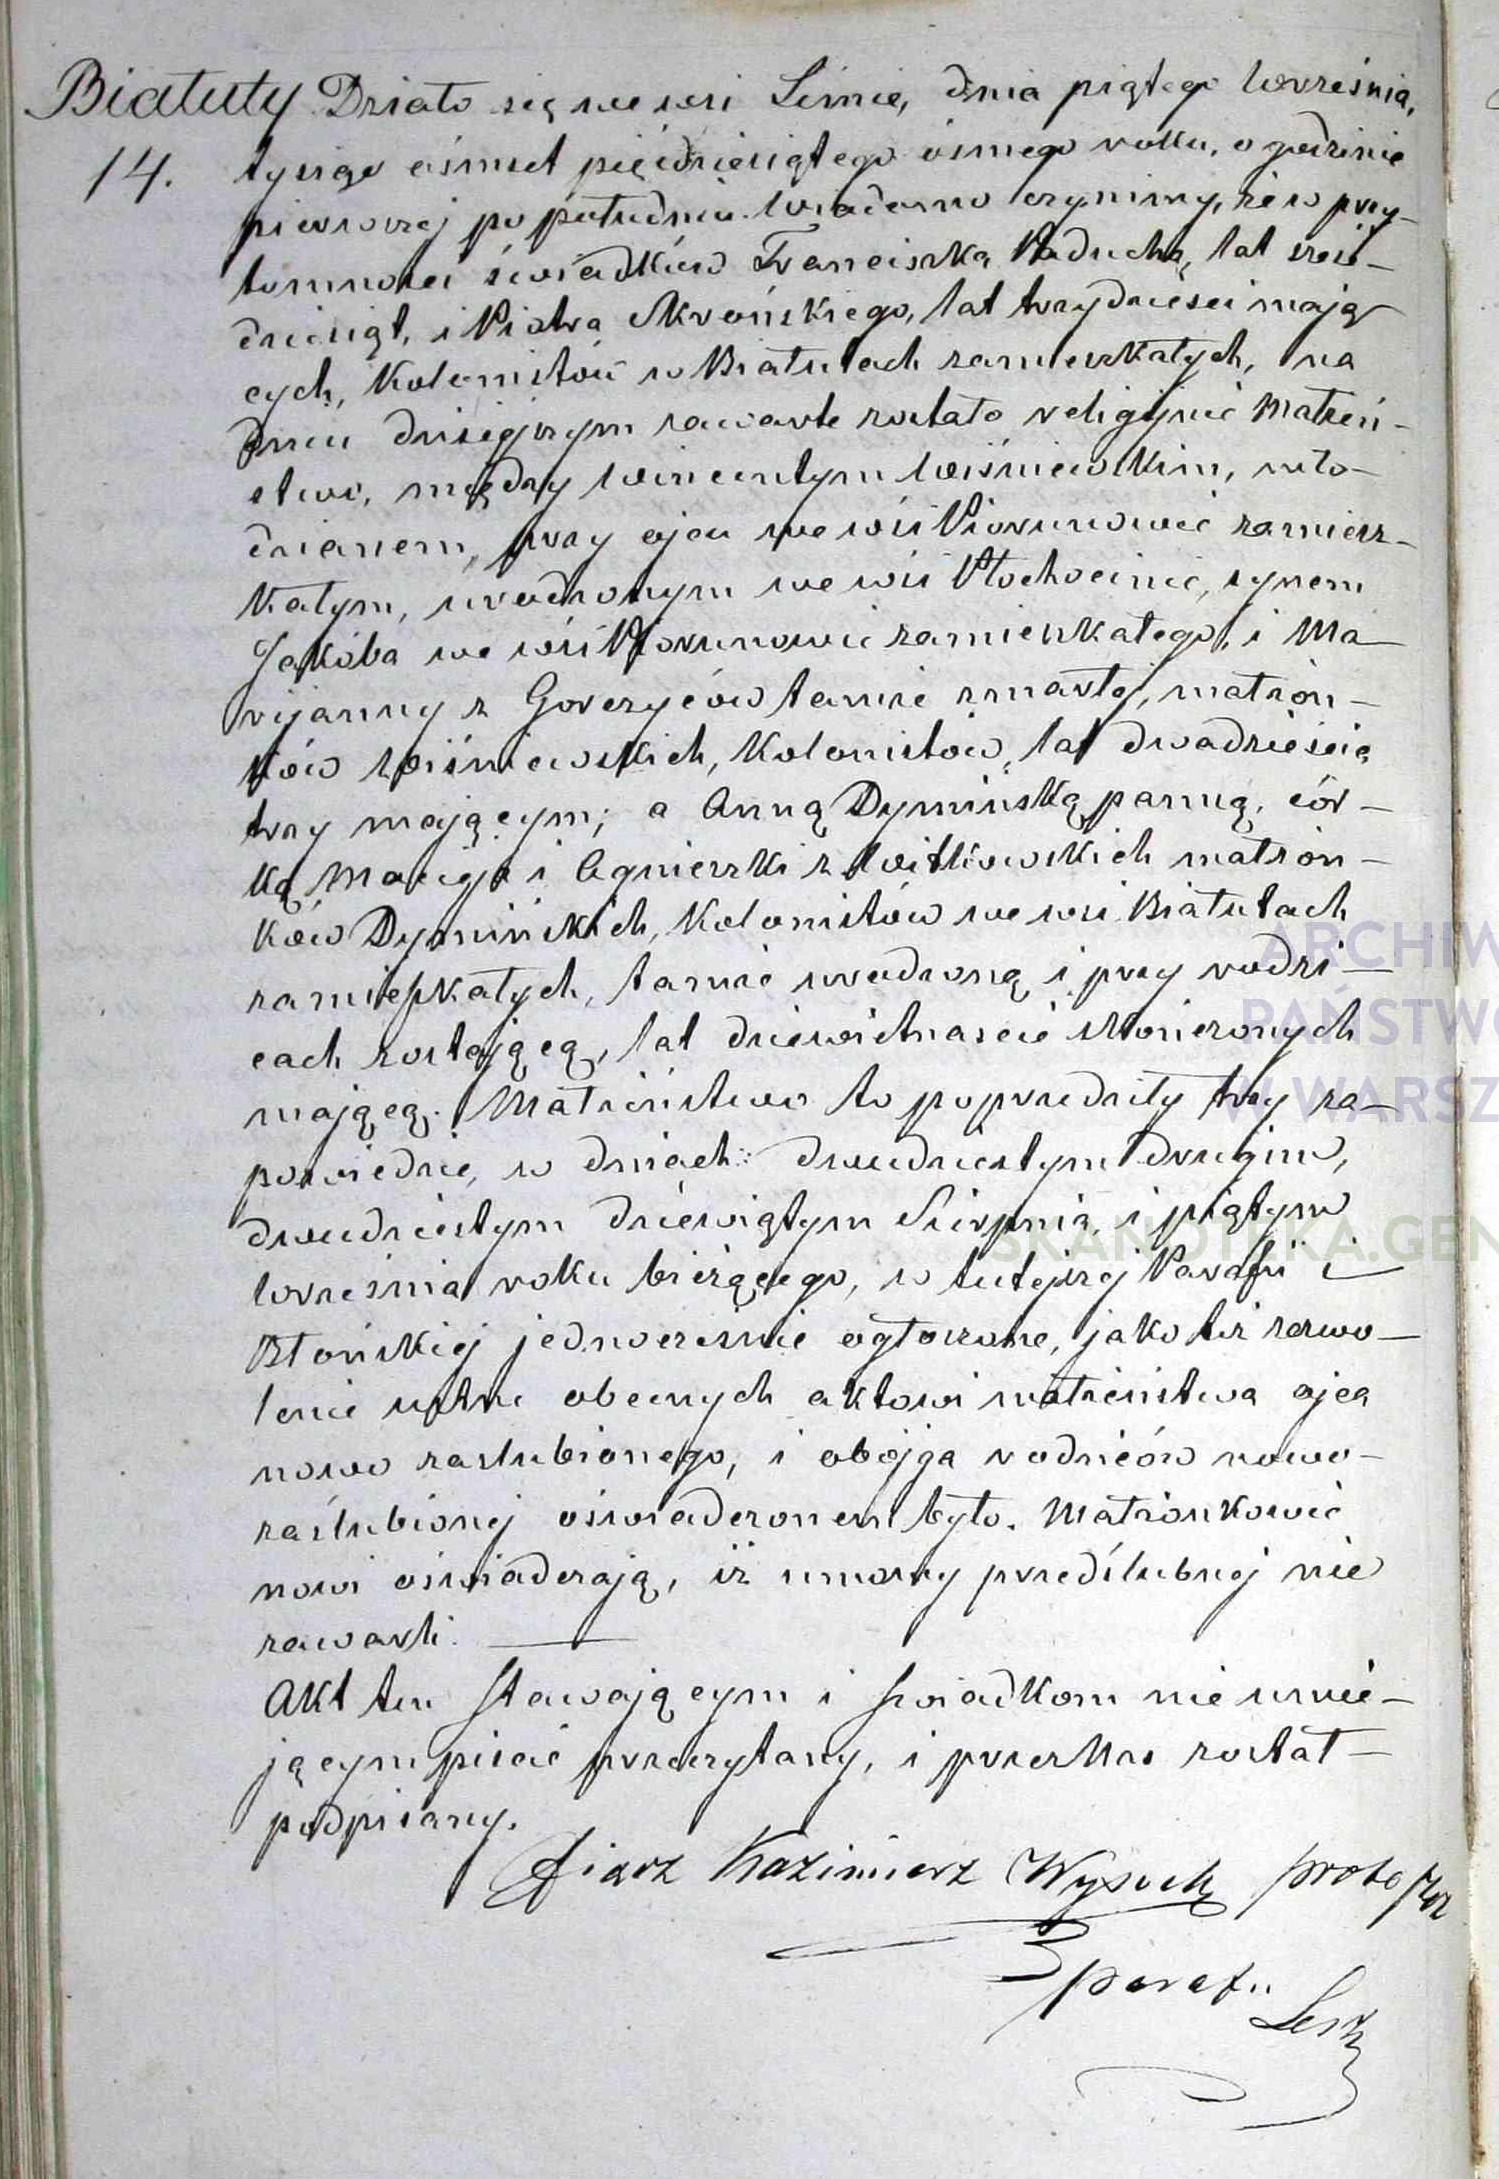 Białuty Działo się we wsi Lesznie, dnia piątego Września,
14. tysiąc ośmset pięćdziesiątego ósmego roku, o godzinie
pierwszej po południu. Wiadomo czynimy, że w przy-
tomności świadków Franciszka Paducha, lat sześć-
dziesiąt, i Piotra Skrońskiego, lat trzydzieści mają
cych, Kolonistów w Białutach zamieszkałych, na
dniu dzisiejszym zawarte zostało religijnie Małżeń-
stwo, między Wincentym Wiśniewskim, mło-
dzianem, przy ojcu we wsi Piorunowie zamiesz-
kałym, urodzonym we wsi Płochocinie, synem
Jakóba we wsi Piorunowie zamieszkałego, i Ma-
ryjanny z Gorczyców tamże zmarłej, małżon-
ków Wiśniewskich, Kolonistów, lat dwadzieścia
trzy mającym; a Anną Dymińską panną, cór-
ką Macieja i Agnieszki z Witkowskich małżon-
ków Dymińskich, Kolonistów we wsi Białutach
zamieszkałych, tamże urodzoną i przy rodzi-
cach zostającą, lat dziewiętnaście skończonych
mającą. Małżeństwo to poprzedziły trzy za-
powiedzie, w dniach: dwudziestym drugim,
dwudziestym dziewiątym Sierpnia, i piątym
Września roku bieżącego, w tutejszej Parafii i
Błońskiej jednocześnie ogłoszone, jako też zezwo-
lenie ustne obecnych aktowi małżeństwa ojca
nowo zaślubionego, i obojga rodziców nowo-
zaślubionej oświadczonem było. Małżonkowie
nowi oświadczają, iż umowy przedślubnej nie
zawarli.
Akt ten stawającym i świadkom nie umie-
jącym pisać przeczytany, i przez Nas został
podpisany.
Xiądz Kazimierz Wysocki proboszcz
parafii
Leszn
ARCHIW
PAŃSTWO
W WARSZ
SKANOTEKA.GEN